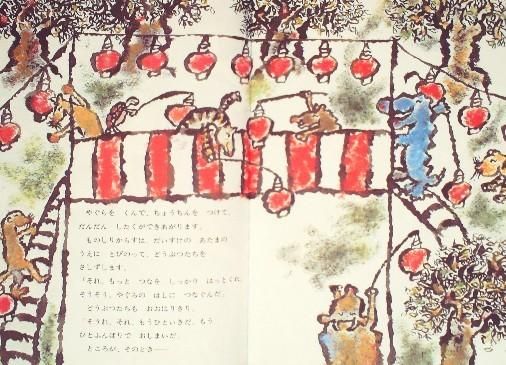 やぐらを くんで、ちょうちんを つけて、
だんだん したくができあがります。
ものしりからすは、だいすけの あたまの
うえに とびのって、どうぶつたちを
さしずします。
「それ、もっと つなを しっかり はっとくれ。
そうそう、やぐらの はしに つなぐんだ」
どうぶつたちも おおはりきり。
「そうれ、それ、もうひといきだ。もう
ひとふんばりで おしまいだ」
ところが、そのとき――